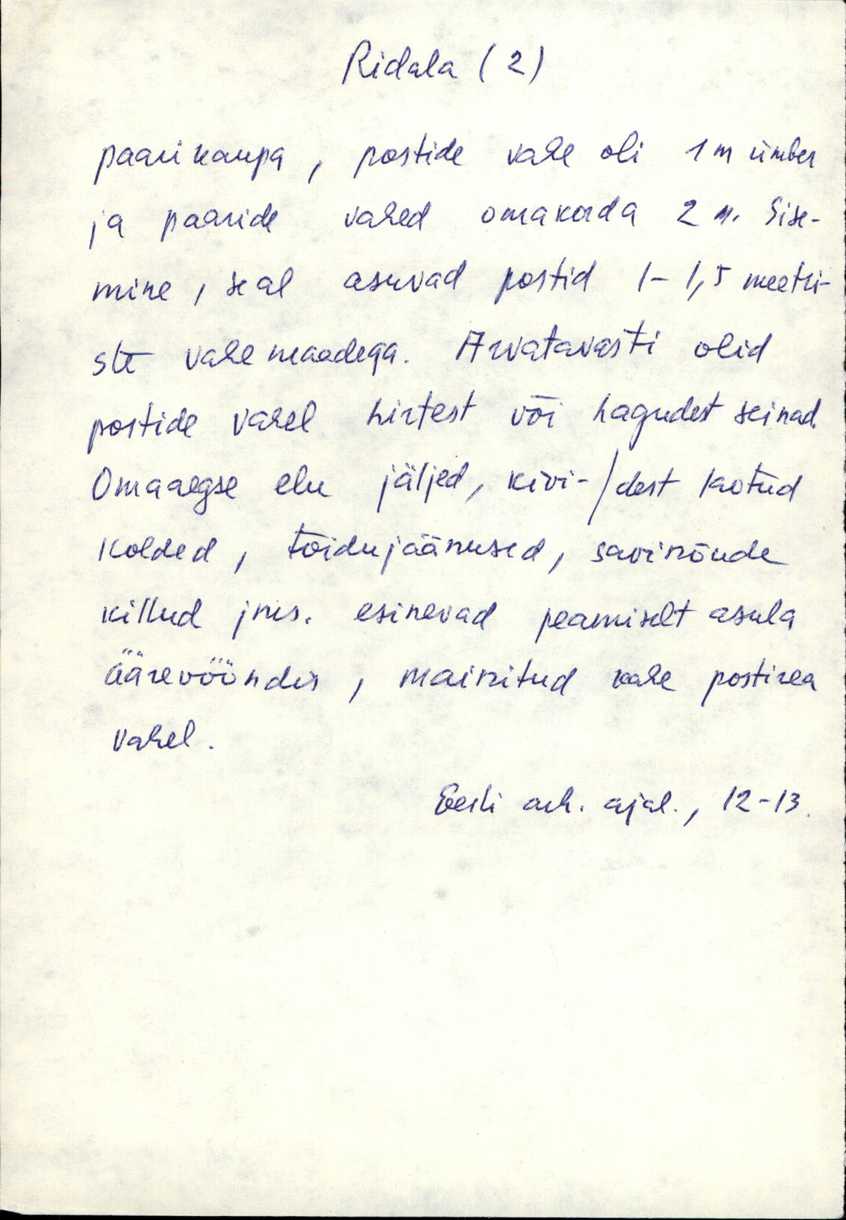 Ridala (2)
paarikaupa, postide vahe oli 1 m ümber
ja paaride vahed omakorda 2 m. Sise-
mine, seal asuvad postid 1-1,5 meetri-
ste vahemaadega. Arvatavasti olid
postide vahel hirtest või hagudest seinad.
Omaaegse elu jäljed, kivi-/dest laotud
kolded, toidujäänused, savinõude
killud jms. esinevad peamiselt asula
äärevööndis, mainitud kahe postirea
vahel.
Eesti arh. ajal., 12-13.